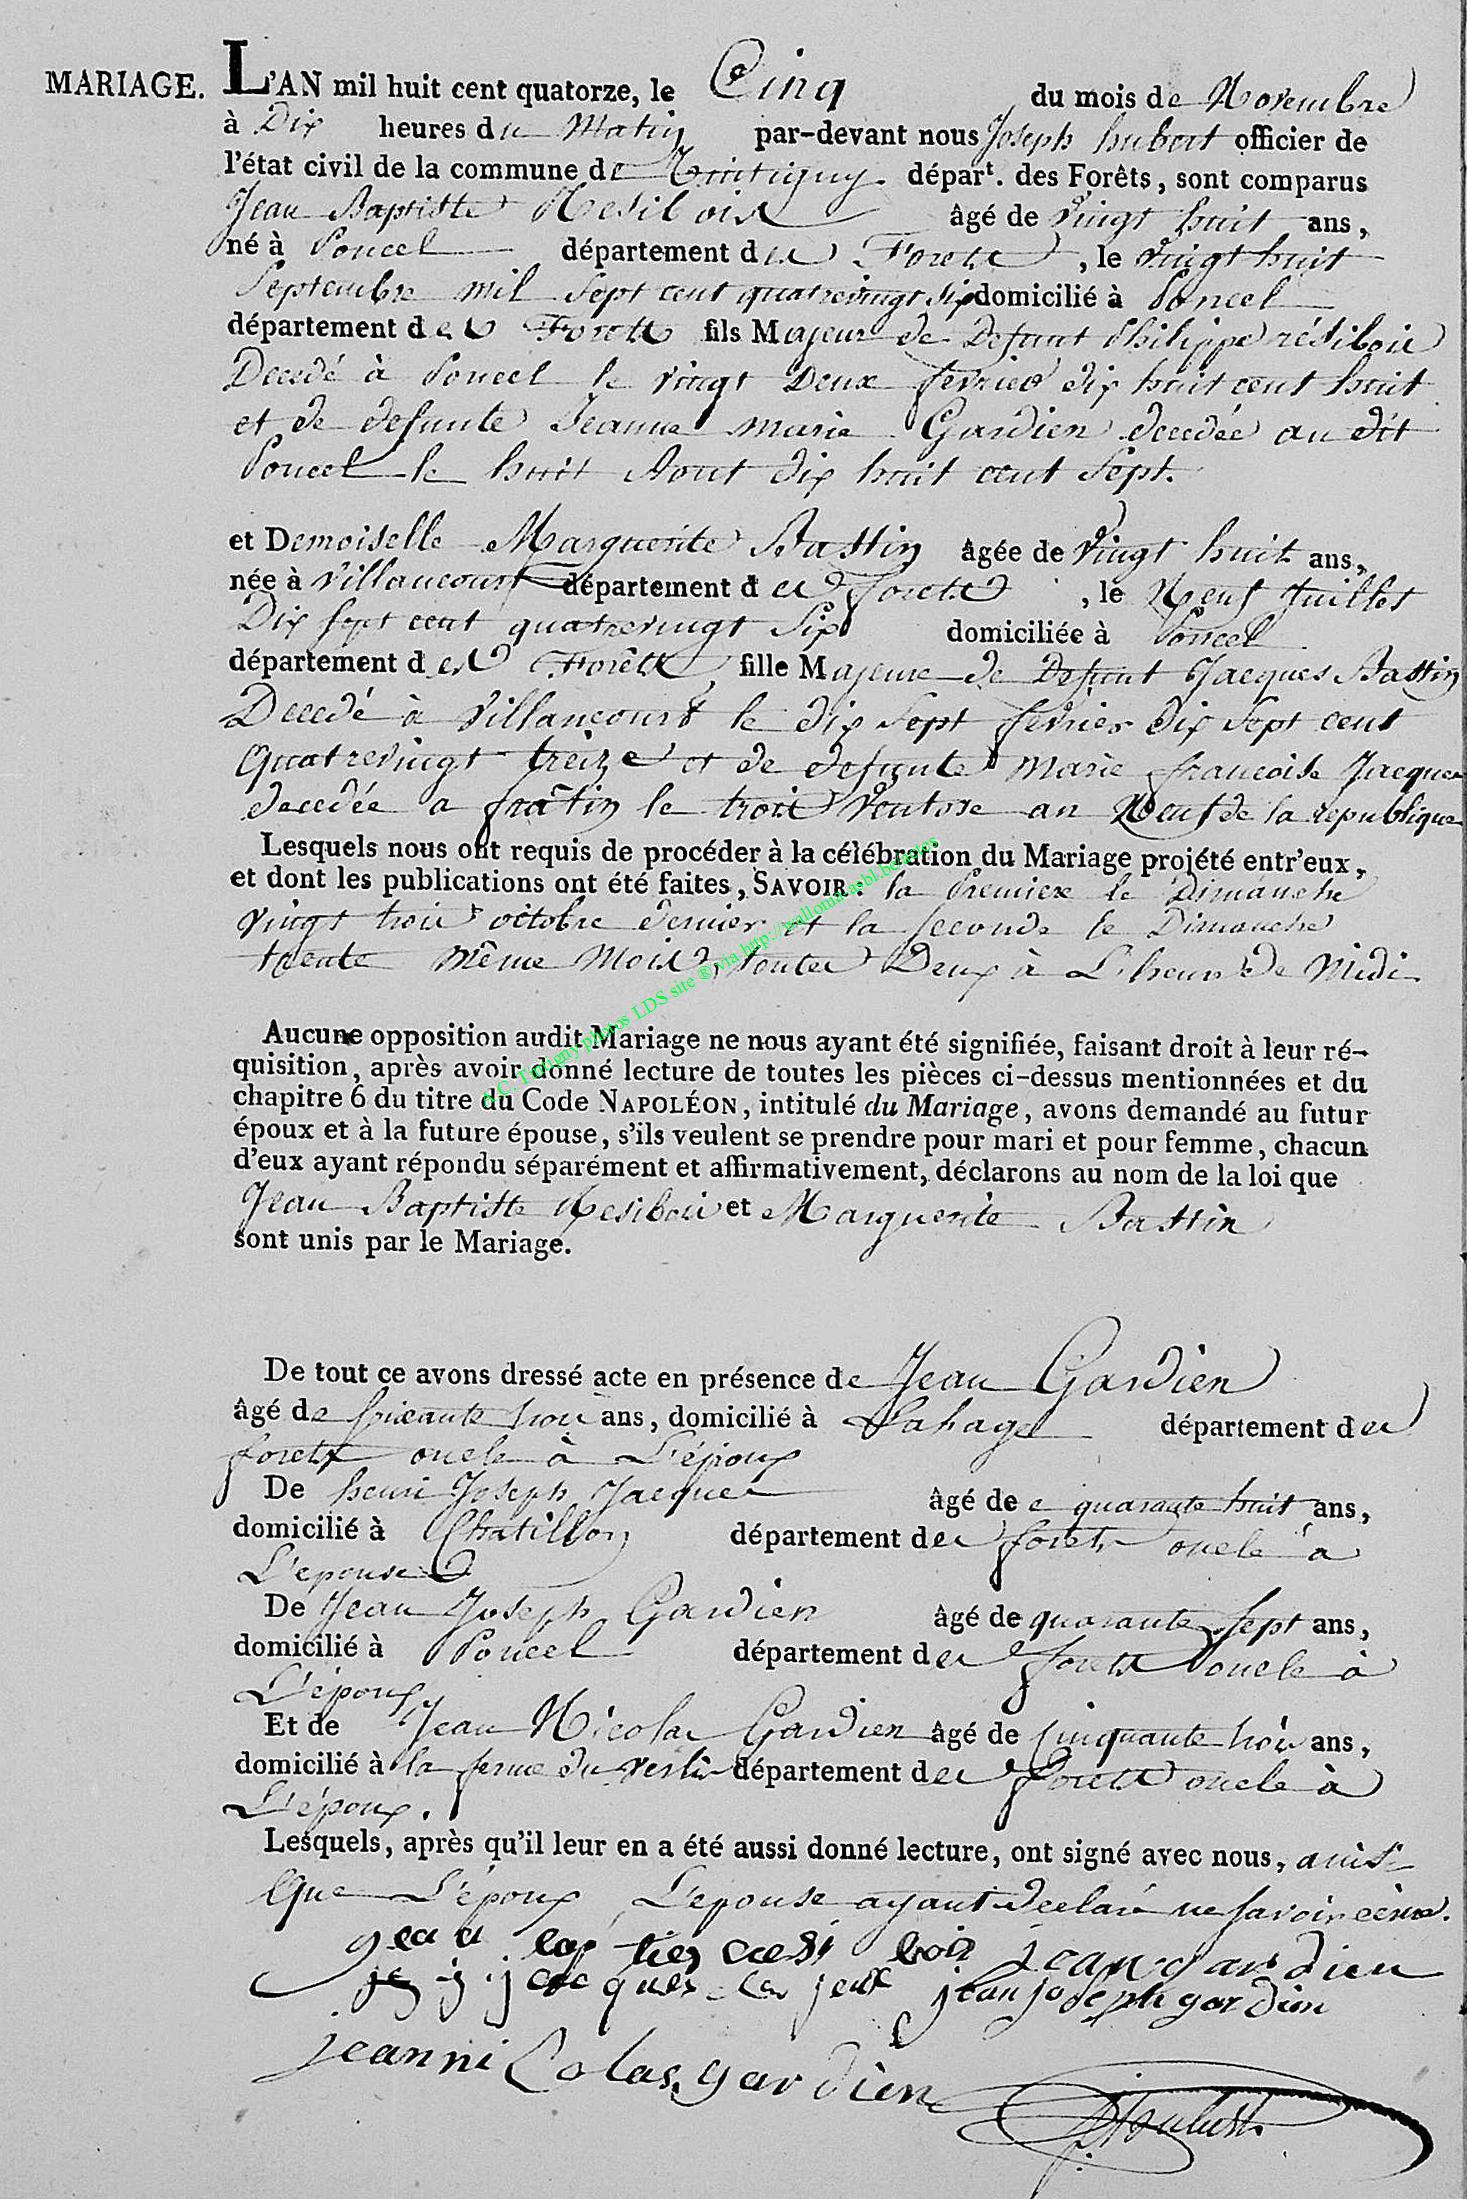 MARIAGE. L'AN mil huit cent quatorze, le Cinq du mois de Novembre
à Dix heures du Matin par-devant nous Joseph hubert officier de
l'état civil de la commune de Tintigny départ. des Forêts, sont comparus
Jean Baptiste Resibois âgé de vingt huit ans,
né à Poncel département des Forets, le vingt huit
Septembre mil sept cent quatrevingt six domicilié à Poncel
département des Forets fils Majeur de Defunt Philippe résibois
Decedé à Poncel le vingt Deux fevrier dix huit cent huit
et de defunte Jeanne marie Gardien decedée au dit
Poncel le huit Aout dix huit cent sept.
et Demoiselle Marguerite Bastin âgée de vingt huit ans,
née à Villancourt département des forets, le Neuf Juillet
Dix sept cent quatrevingt Six domiciliée à Poncel
département des Forêts fille Majeure de Defunt Jacques Bastin
Decedé à Villancourt le dix Sept fevrier dix sept cent
quatrevingt treize et de defunte marie francoise Jacques
decedée a fratin le trois Ventose an Neuf de la republique
Lesquels nous ont requis de procéder à la célébration du Mariage projété entr'eux,
et dont les publications ont été faites, SAVOIR: la Premiere le Dimanche
vingt trois octobre dernier et la seconde le Dimanche
trente même Mois, toutes Deux à L'heure de Midi
A.C. Tintigny photos LDS site ® via
Aucune opposition audit Mariage ne nous ayant été signifiée, faisant droit à leur ré-
quisition, après avoir donné lecture de toutes les pièces ci-dessus mentionnées et du
chapitre 6 du titre du Code NAPOLÉON, intitulé du Mariage, avons demandé au futur
époux et à la future épouse, s'ils veulent se prendre pour mari et pour femme, chacun
d'eux ayant répondu séparément et affirmativement, déclarons au nom de la loi que
Jean Baptiste Resibois et Marguerite Bastin
sont unis par le Mariage.
De tout ce avons dressé acte en présence de Jean Gardien
âgé de soixante trois ans, domicilié à Lahage département des
forets oncle à L'époux
De henri Joseph Jacques âgé de quarante huit ans,
domicilié à Chatillon département des forets oncle à
L'epouse
De Jean Joseph Gardien âgé de quarante sept ans,
domicilié à Poncel département des forets oncle à
L'époux
Et de Jean Nicolas Gardien âgé de cinquante trois ans,
domicilié à la ferme du département des forets oncle à
L'époux.
Lesquels, après qu'il leur en a été aussi donné lecture, ont signé avec nous, ainsi
Que L'époux, L'epouse ayant declaré ne savoir écrire.
jean gardien
jacques jean joseph gardien
jeanni Colas gardien
Hubert